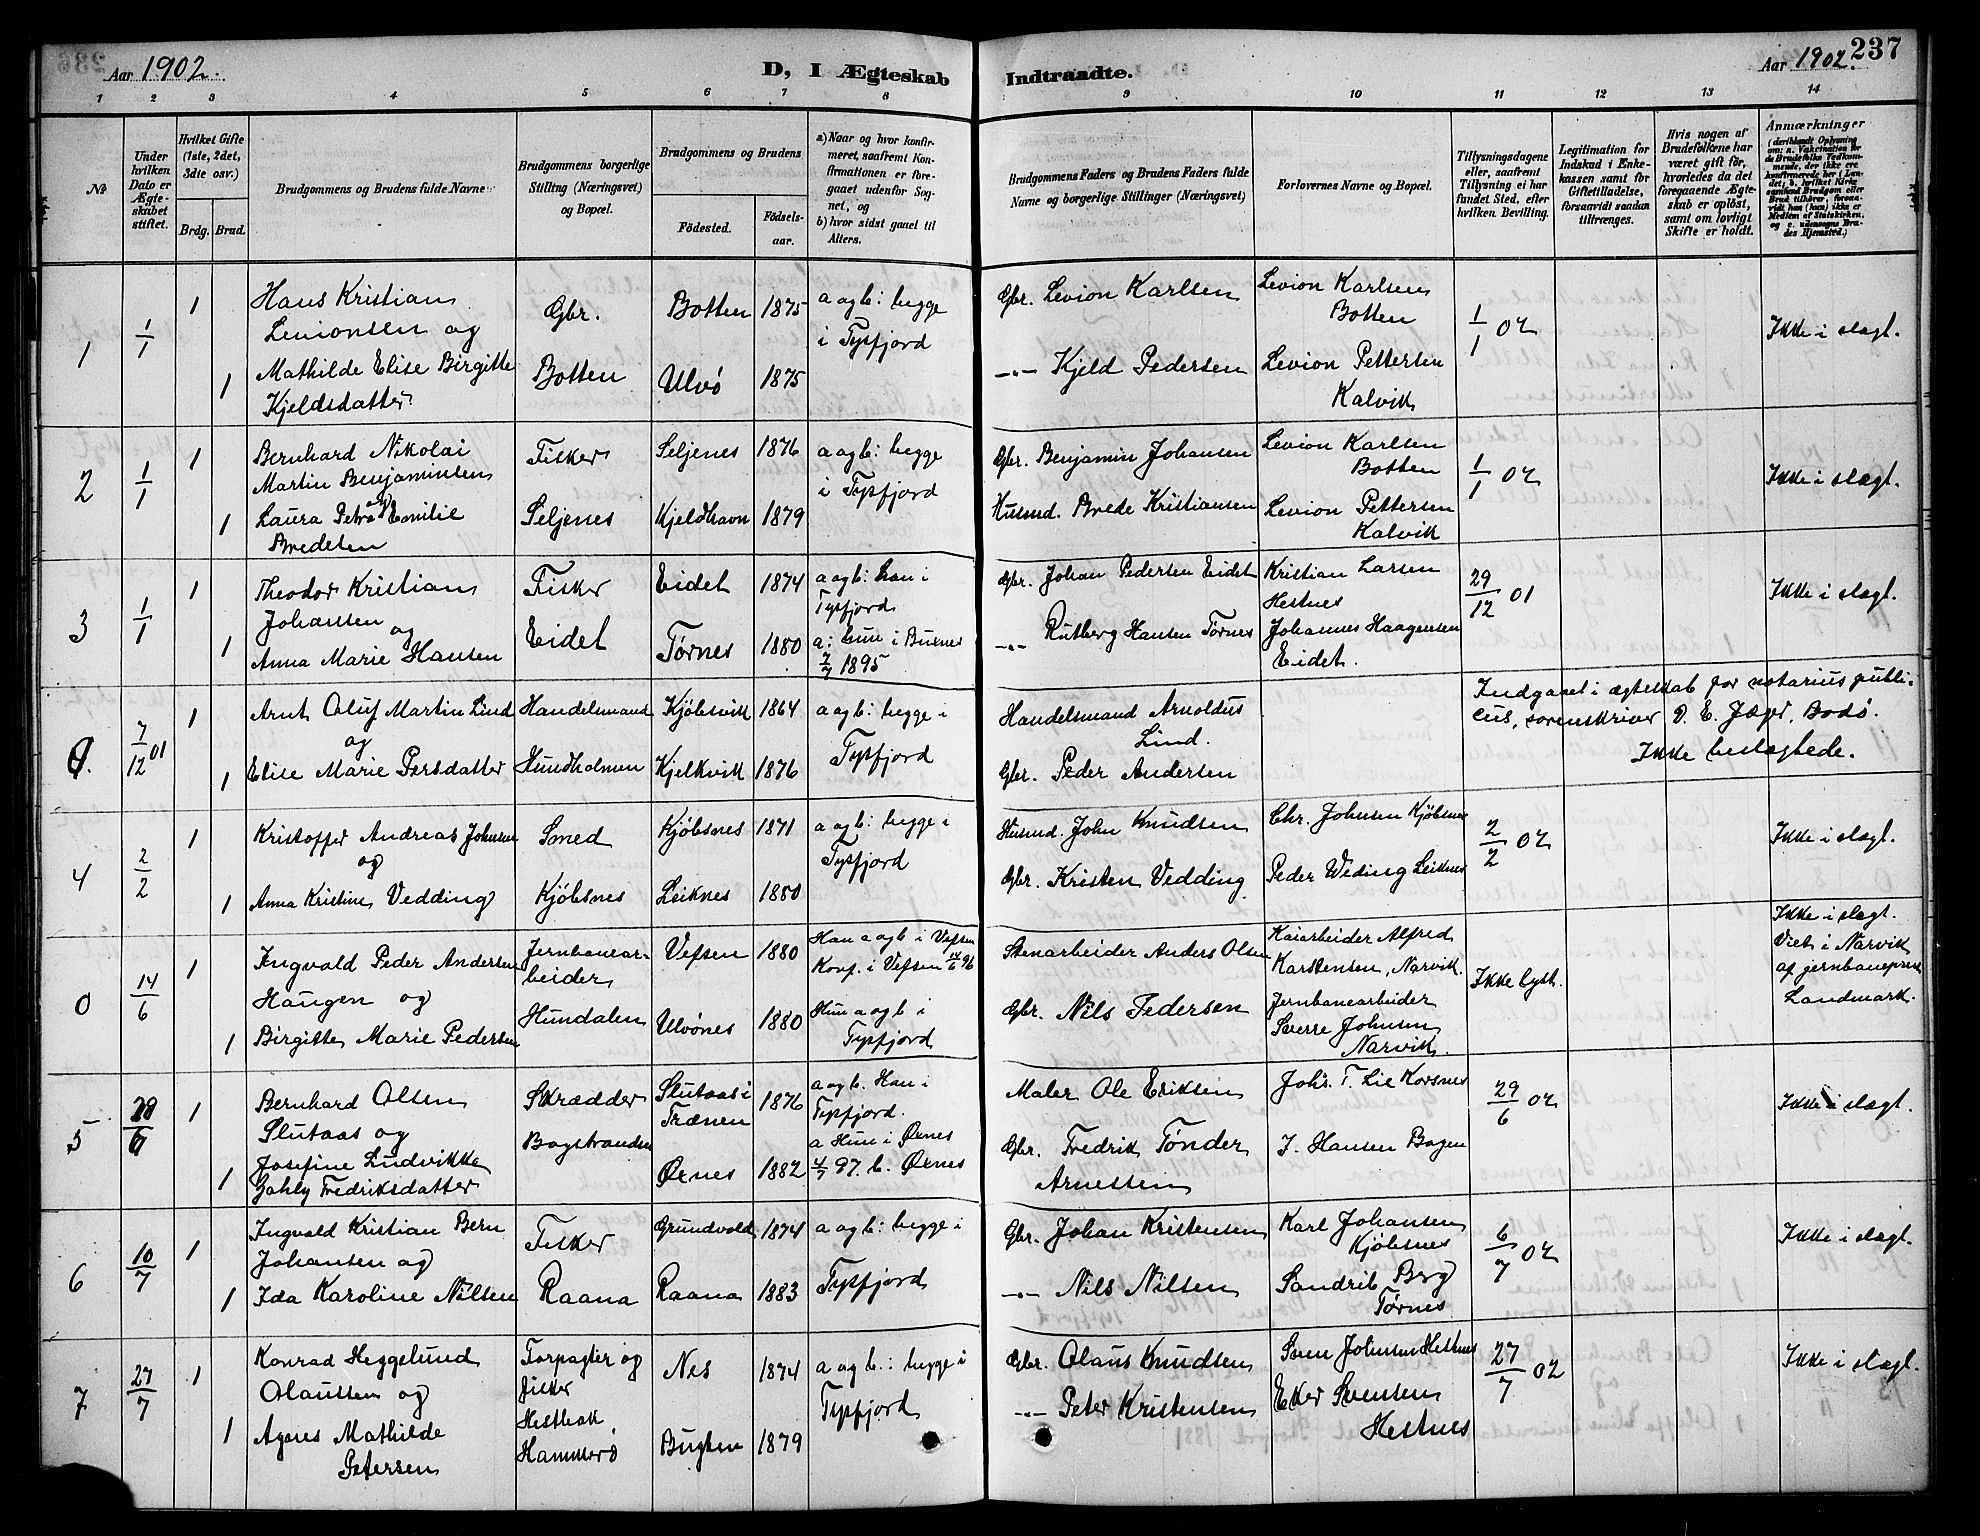 Aar 1902.
D, I Ægteskab
Indtraadte.
Aar 1902.
237
1 2 3 4 5 6 7 8 9 10 11 12 13 14
No
Under hvilken Dato er Ægteskabet stiftet.
Hvilket Gifte (1ste, 2det, 3die osv.)
Brdg. Brud.
Brudgommens og Brudens fulde Navne
Brudgommens borgerlige Stilling (Næringsvei) og Bopæl.
Brudgommens og Brudens
Fødested.
Fødselsaar.
a) Naar og hvor konfirmeret, saafremt Konfirmationen er foregaaet udenfor Sognet, og
b) hvor sidst gaaet til Alters.
Brudgommens Faders og Brudens Faders fulde Navne og borgerlige Stillinger (Næringsvei)
Forlovernes Navne og Bopæl.
Tillysningsdagene eller, saafremt Tillysning ei har fundet Sted, efter hvilken Bevilling.
Legitimation for Indskud i Enkekassen samt for Giftetilladelse, forsaavidt saadan tiltrænges.
Hvis nogen af Brudefolkene har været gift før, hvorledes da det foregaaende Ægteskab er opløst, samt om lovligt Skifte er holdt.
Anmærkninger
(deriblandt Oplysning om: a. Vaksination for de Brudefolks Vedkommende, der ikke ere konfirmerede her i Landet; b. hvilket Kirkesamfund Brudgom eller Brud tilhører, forsaavidt han (hun) ikke er Medlem af Statskirken, og c. udensogns Brudes Hjemsted.)
1
1/1
1
1
Hans Kristian
Levionsen og
Mathilde Elise Birgitte
Kjeldsdatter
Gbr.
Botten
Botten 1875
Ulvö 1875
a og b: begge
i Tysfjord
Gbr. Levion Karlsen
-"- Kjeld Pedersen
Levion Karlsen
Botten
Levion Pettersen
Kalvik
1/1 02
Ikke i slægt.
2
1/1
1
1
Bernhard Nikolai
Martin Benjaminsen
og
Laura Petra Emilie
Bredesen
Fisker
Seljenes
Seljenes 1876
Kjeldhavn 1879
a og b: begge
i Tysfjord
Gbr. Benjamin Johansen
Husmd. Brede Kristiansen
Levion Karlsen
Botten
Levion Pettersen
Kalvik
1/1 02
Ikke i slægt.
3
1/1
1
1
Theodor Kristian
Johansen
og
Anna Marie Hansen
Fisker
Eidet
Eidet 1874
Tørnes 1880
a og b: han i
Tysfjord
a: hun i Buxnes
7/7 1895
Gbr. Johan Pedersen Eidet
-"- Rutberg Hansen Tørnes
Kristian Larsen
Hestnes
Johannes Haagensen
Eidet.
29/12 01
Ikke i slægt.
0.
7/12 01
1
1
Arnt Oluf Martin Lind
og
Elise Marie Persdatter
Handelsmand
Hundholmen
Kjöbsvik 1864
Kjelkvik 1876
a og b: begge i
Tysfjord
Handelsmand Arnoldus
Lind.
Gbr. Peder Andersen
Indgaaet i ægteskab for notarius publi-
cus, sorenskriver D. E. Jæger, Bodö.
Ikke beslægtede.
4
2/2
1
1
Kristoffer Andreas Johnsen
og
Anna Kristine Vedding
Smed
Kjöbsnes
Kjöbsnes 1871
Leiknes 1880
a og b: begge i
Tysfjord
Husmd. John Knudsen
Gbr. Kristen Vedding
Chr. Johnsen Kjöbsnes
Peder Weding Leiknes
2/2 02
Ikke i slægt.
0
14/6
1
1
Ingvald Peder Andersen
Haugen og
Birgitte Marie Pedersen
Jernbanear-
beider
Hundalen
Vefsen 1880
Ulvönes 1880
Han a og b i Vefsen
Konf. i Vefsen 14/6 96
Hun a og b i
Tysfjord
Stenarbeider Anders Olsen
Gbr. Nils Pedersen
Kaiarbeider Alfred
Karstensen, Narvik.
Jernbanearbeider
Sverre Johnsen
Narvik.
Ikke lyst.
Ikke i slægt.
Viet i Narvik
af jernbanepræst
Landmark.
5
29/6
1
1
Bernhard Olsen
Slutaas og
Josefine Ludvikke
Zahly Fredriksdatter
Skrædder
Bogstranden
Slutaas i
Trænen 1876
Ørnes 1882
a og b. Han i
Tysfjord.
a Hun i Ørnes
4/7 97 b. Ørnes
Maler Ole Eriksen
Gbr. Fredrik Tönder
Arnessen
Johs. T. Lie Korsnes
J. Hansen Bogen
29/6 02
Ikke i slægt.
6
10/7
1
1
Ingvald Kristian Bern
Johansen og
Ida Karoline Nilsen
Fisker
Raana
Grundvold 1874
Raana 1883
a og b: begge i
Tysfjord
Gbr. Johan Kristensen
-"- Nils Nilsen
Karl Johansen
Kjöbsnes
Sandrib Berg
Tørnes
6/7 02
Ikke i slægt.
7
27/7
1
1
Konrad Heggelund
Olaussen og
Agnes Mathilde
Petersen
Forpagter og
fisker
Hestbak
Hammerö
Nes 1874
Bugten 1879
a og b.: begge i
Tysfjord
Gbr. Olaus Knudsen
-"- Peter Kristensen
Sven Johnsen Hestnes
Eker Svensen
Hestnes
27/7 02
Ikke i slægt.